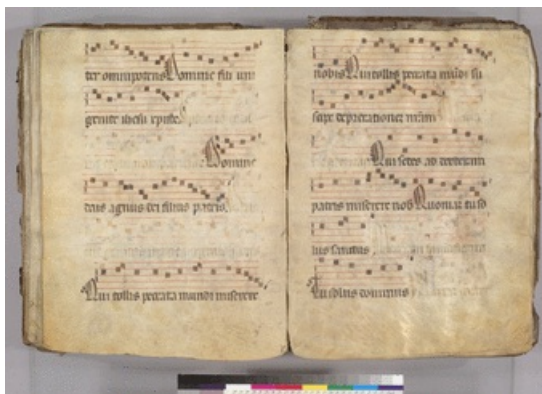 ter omnipotens Domine fili uni
genite ihesu xpiste
Domine
deus agnus dei filius patris
Qui tollis peccata mundi miserere
nobis Qui tollis peccata mūdi su
scipe deprecationez nr̄am
Qui sedes ad dexteram
patris miserere nob Quoniaz tu so
lus sanctus
Tu solus dominus